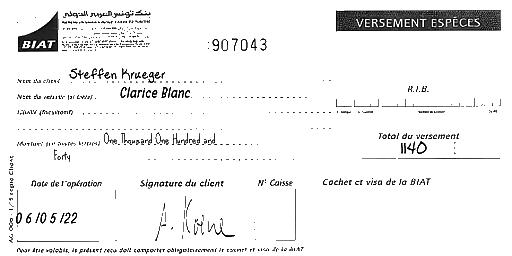 بنك تونس العربي الدولي
BIAT
VERSEMENT ESPÈCES
:907043
Nom du client Steffen Krueger
Nom du verseur (si tiers) Clarice Blanc
R.I.B.
Libellé (facultatif)
Montant (en toutes lettres) One Thousand One Hundred and
Forty
Total du versement
1140
Date de l'opération
Signature du client
N° Caisse
Cachet et visa de la BIAT
06/05/22
A. Koene
Pour être valable, le présent reçu doit comporter obligatoirement le cachet et visa de la BIAT